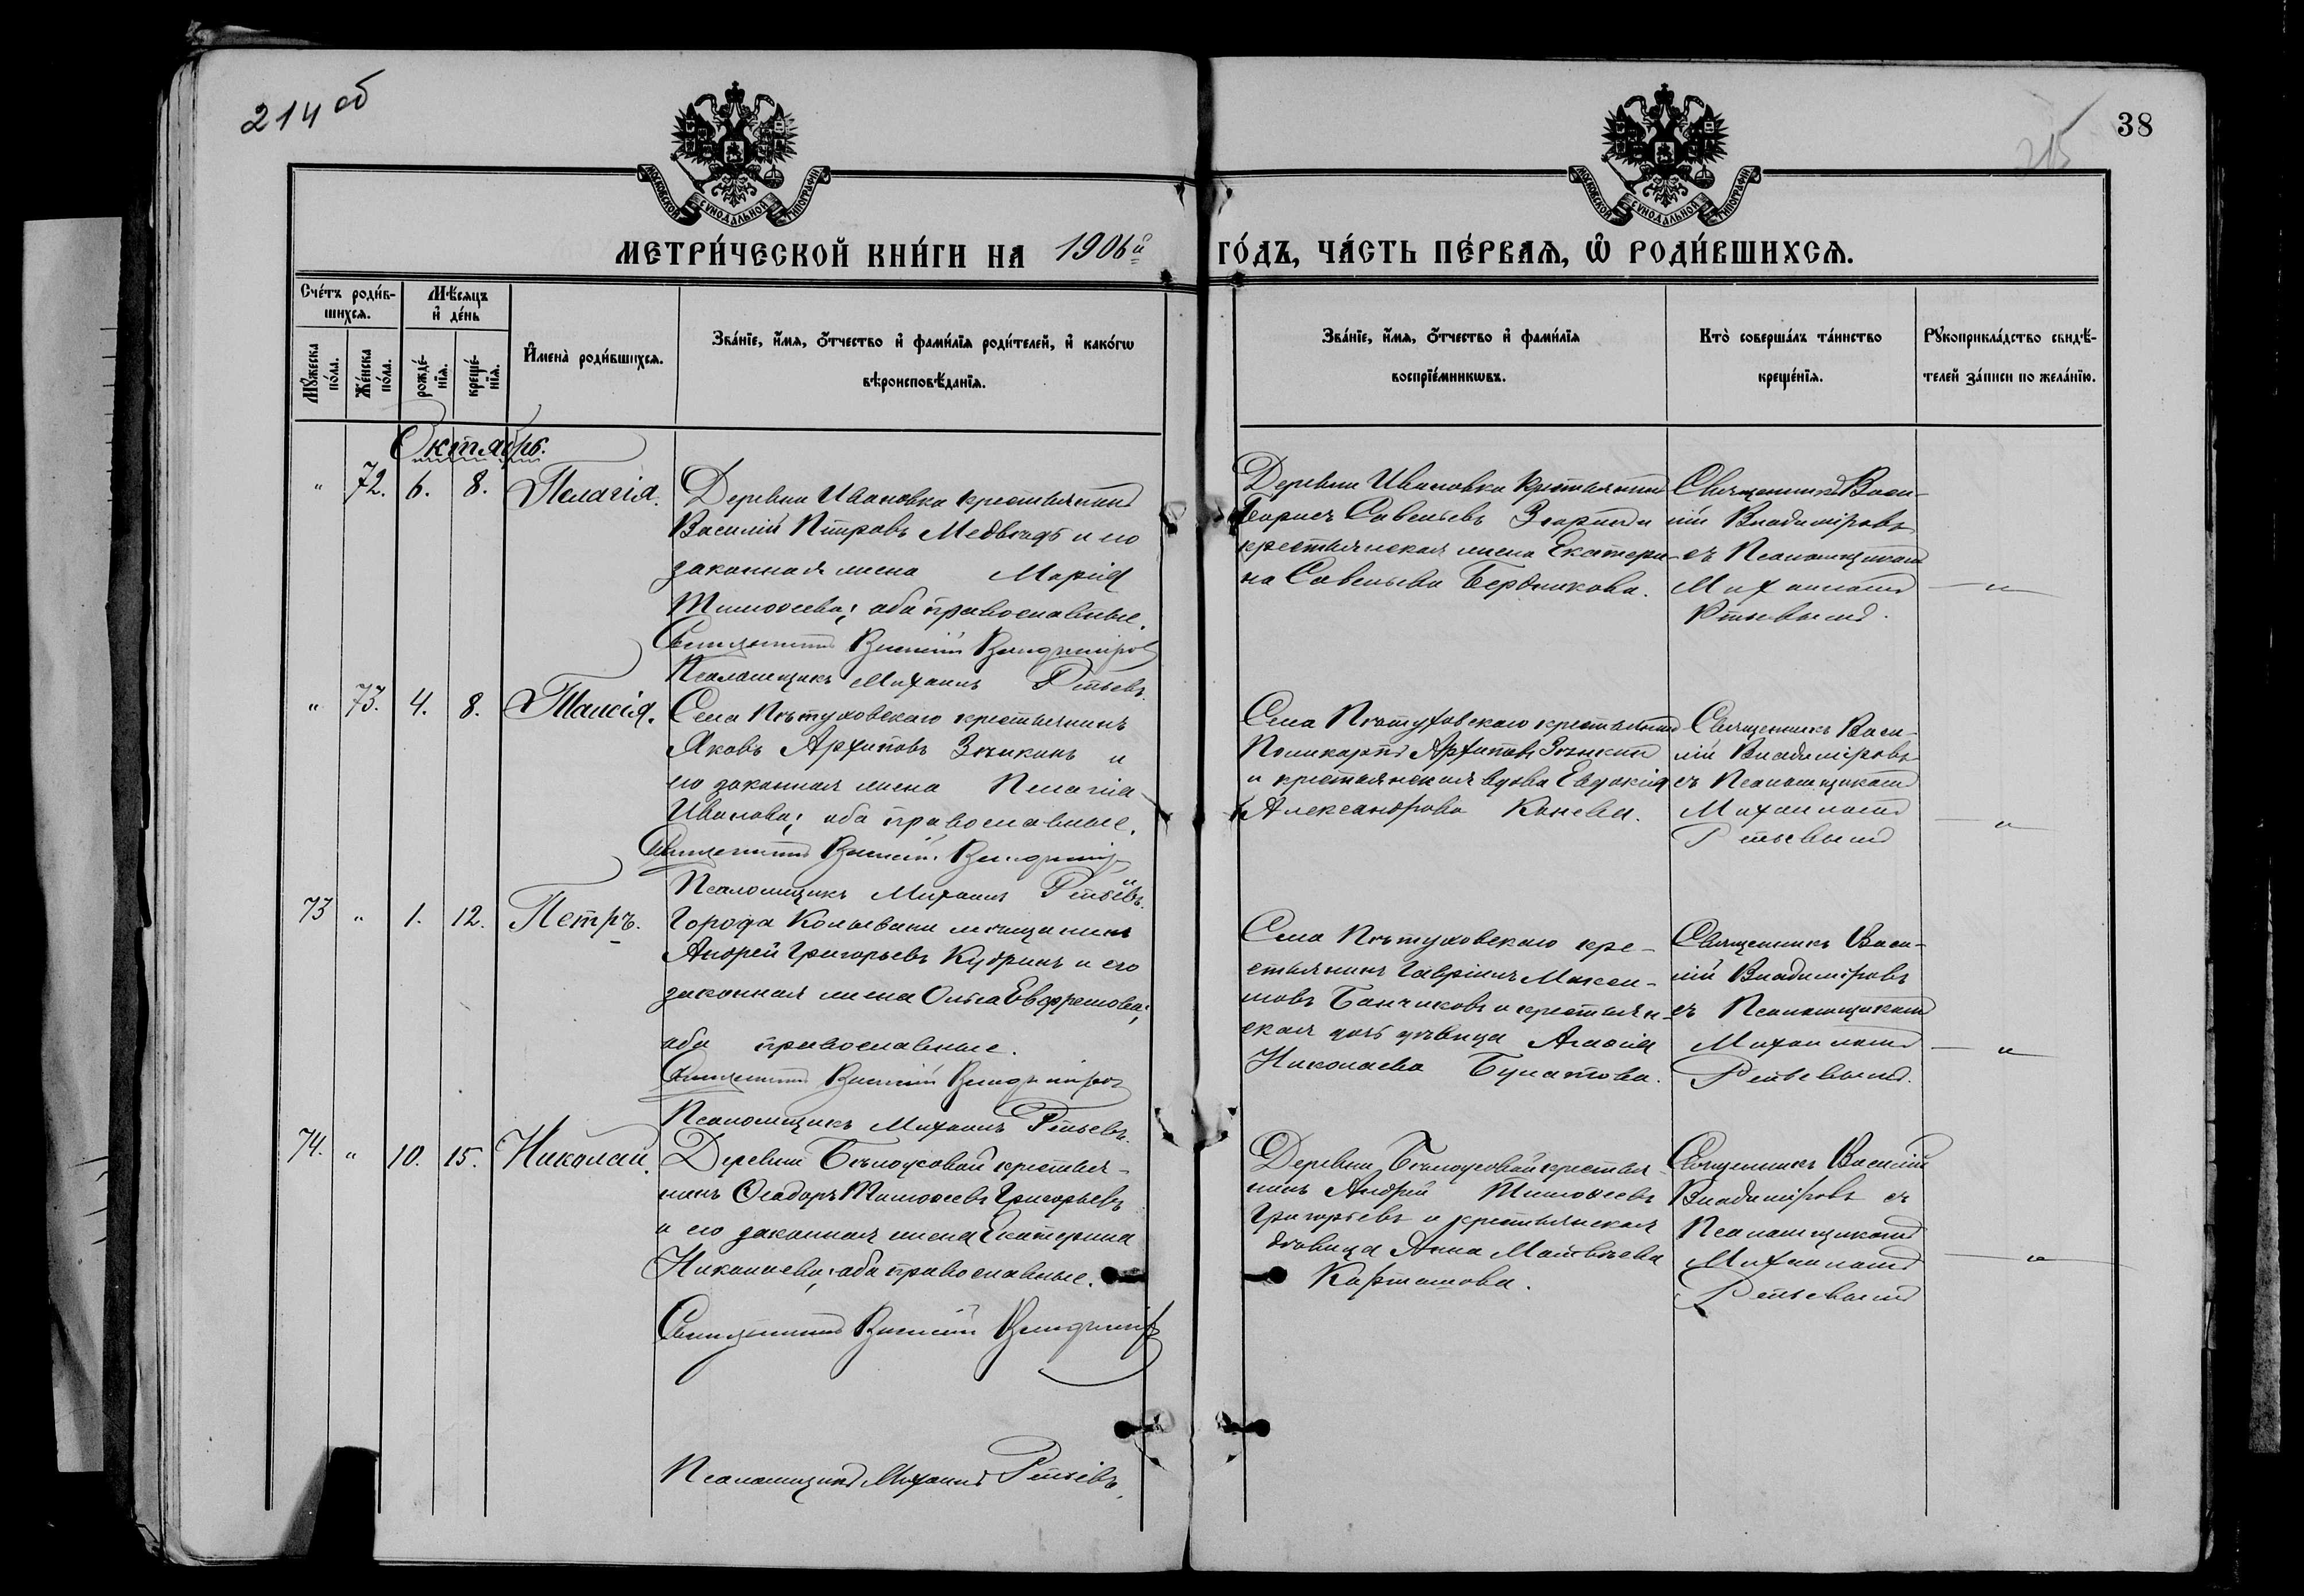 214 об
38
215
МОСКОВСКОЙ СѴНОДАЛЬНОЙ ТИПОГРАФІИ
МОСКОВСКОЙ СѴНОДАЛЬНОЙ ТИПОГРАФІИ
МЕТРИ́ЧЕСКОЙ КНИ́ГИ НА 1906й ГО́ДЪ, ЧА́СТЬ ПЕ́РВАЯ, Ѡ҆ РОДИ́ВШИХСЯ.
Сче́тъ роди́в-
шихся.
Мѣ́сяцъ
и҆ де́нь
Мꙋ́жеска
по́ла.
Же́нска
по́ла.
рожде́-
нїѧ.
креще́-
нїѧ.
И҆мена̀ роди́вшихся.
Зва́нїе, и҆́мя, ѻ҆́тчество и҆ фами́лїя роди́телей, и҆ како́гѡ
вѣроисповѣ́данїя.
Зва́нїе, и҆́мя, ѻ҆́тчество и҆ фами́лїя
воспрїе́мникѡвъ.
Кто̀ соверша́лъ та́инство
креще́нїя.
Рꙋкоприкла́дство свидѣ́-
телей за́писи по жела́нїю.
Октябрь.
" 72. 6. 8. Пелагія.
Деревни Ивановки крестьянинъ
Василій Петровъ Медвѣдь и его
законная жена Марія
Тимоѳеева; оба православные.
Священникъ Василій Владиміров
Псаломщикъ Михаилъ Ретьевъ.
Деревни Ивановки крестьянинъ
Борисъ Савельевъ и
крестьянская жена Екатери-
на Савельева Бердникова.
Священникъ Васи-
лій Владиміровъ
съ Псаломщикомъ
Михаиломъ
Ретьевымъ.
"
" 73. 4. 8. Таисія.
Села Пѣтуховскаго крестьянинъ
Яковъ Архиповъ Зыкинъ и
его законная жена Пелагія
Иванова; оба православные.
Священникъ Василій Владимір
Псаломщикъ Михаилъ Ретьевъ.
Села Пѣтуховскаго крестьянинъ
Поликарпъ Архиповъ Зыкинъ
и крестьянская вдова Евдокія
Александрова Конева.
Священникъ Васи-
лій Владиміровъ
съ Псаломщикомъ
Михаиломъ
Ретьевымъ
"
73 " 1. 12. Петръ.
Города Колывани мѣщанинъ
Андрей Григорьевъ Кудринъ и его
законная жена Ольга Евфремова;
оба православные.
Священникъ Василій Владиміров
Псаломщикъ Михаилъ Ретьевъ.
Села Пѣтуховскаго кре-
стьянинъ Гавріилъ Макси-
мовъ Банчиковъ и крестьян-
ская дочь дѣвица Агаѳія
Николаева Булатова.
Священникъ Васи-
лій Владиміровъ
съ Псаломщикомъ
Михаиломъ
Ретьевымъ.
"
74. " 10. 15. Николай.
Деревни Бѣлоусовой крестья-
нинъ Ѳеодоръ Тимоѳеевъ Григорьевъ
и его законная жена Екатерина
Николаева; оба православные.
Священникъ Василій Владимір
Псаломщикъ Михаилъ Ретьевъ.
Деревни Бѣлоусовой крестья
нинъ Андрей Тимоѳеевъ
Григорьевъ и крестьянская
дѣвица Анна Матвѣева
Карташова.
Священникъ Василій
Владиміровъ съ
Псаломщикомъ
Михаиломъ
Ретьевымъ
"